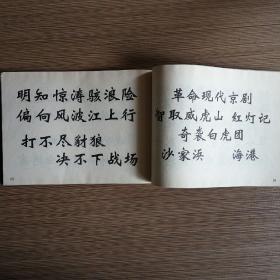 明知惊涛骇浪险
偏向风波江上行
打不尽豺狼
决不下战场
革命现代京剧
智取威虎山 红灯记
奇袭白虎团
沙家浜 海港